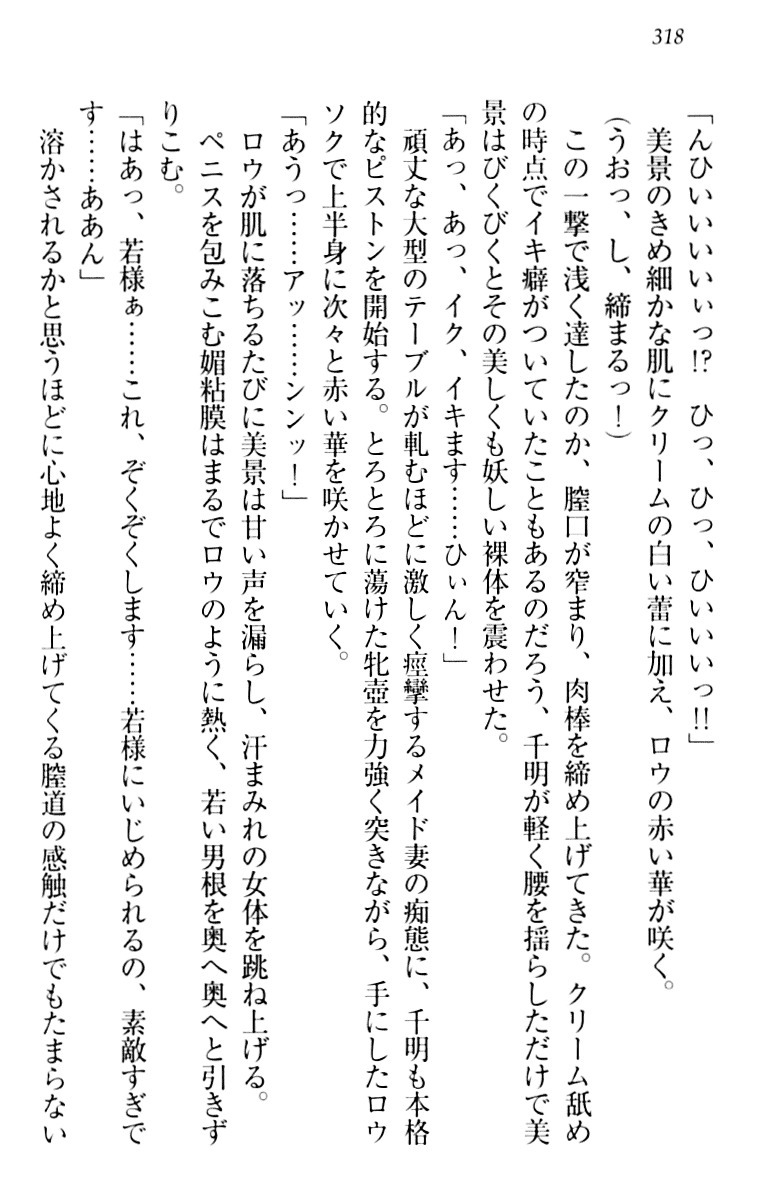 318
「んひいいいいぃっ!?　ひっ、ひっ、ひいいいっ!!」
美景のきめ細かな肌にクリームの白い蕾に加え、ロウの赤い華が咲く。
(うおっ、し、締まるっ！)
この一撃で浅く達したのか、膣口が窄まり、肉棒を締め上げてきた。クリーム舐め
の時点でイキ癖がついていたこともあるのだろう、千明が軽く腰を揺らしただけで美
景はびくびくとその美しくも妖しい裸体を震わせた。
「あっ、あっ、イク、イキます……ひぃん！」
頑丈な大型のテーブルが軋むほどに激しく痙攣するメイド妻の痴態に、千明も本格
的なピストンを開始する。とろとろに蕩けた牝壺を力強く突きながら、手にしたロウ
ソクで上半身に次々と赤い華を咲かせていく。
「あうっ……アッ……ンンッ！」
ロウが肌に落ちるたびに美景は甘い声を漏らし、汗まみれの女体を跳ね上げる。
ペニスを包みこむ媚粘膜はまるでロウのように熱く、若い男根を奥へ奥へと引きず
りこむ。
「はあっ、若様ぁ……これ、ぞくぞくします……若様にいじめられるの、素敵すぎで
す……ああん」
溶かされるかと思うほどに心地よく締め上げてくる膣道の感触だけでもたまらない